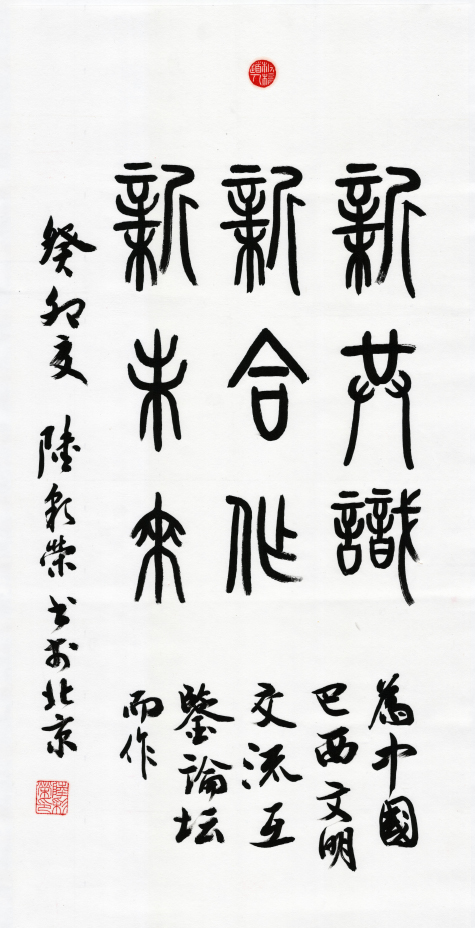 新共識
新合作
新未來
為中國
巴西文明
交流互
鑒論坛
而作
癸卯夏 陸彩榮書於北京